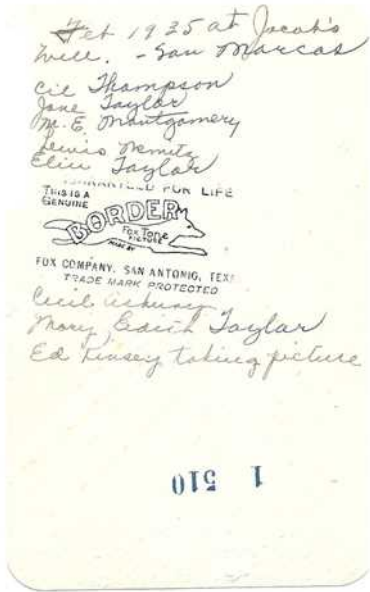 Feb 1935 at Jacob's
Well. - San Marcas
Cil Thompson
Jane Taylor
M. E. Montgomery
Lewis Nemitz
Elin Taylor
GUARANTEED FOR LIFE
THIS IS A
GENUINE
BORDER
FOX TONE
PICTURE
MADE BY
FOX COMPANY, SAN ANTONIO, TEXAS
TRADE MARK PROTECTED
Cecil
Mary Edith Taylor
Ed Kinsey taking picture
1 510